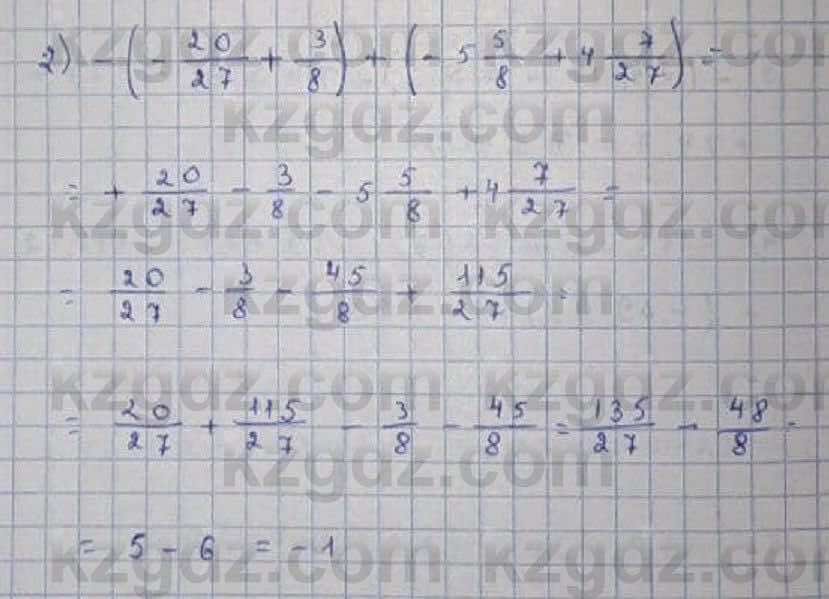 2) - (- 20/27 + 3/8) + (- 5 5/8 + 4 7/27) =
= + 20/27 - 3/8 - 5 5/8 + 4 7/27 =
= 20/27 - 3/8 - 45/8 + 115/27 =
= 20/27 + 115/27 - 3/8 - 45/8 = 135/27 - 48/8 =
= 5 - 6 = - 1
kzgdz.com